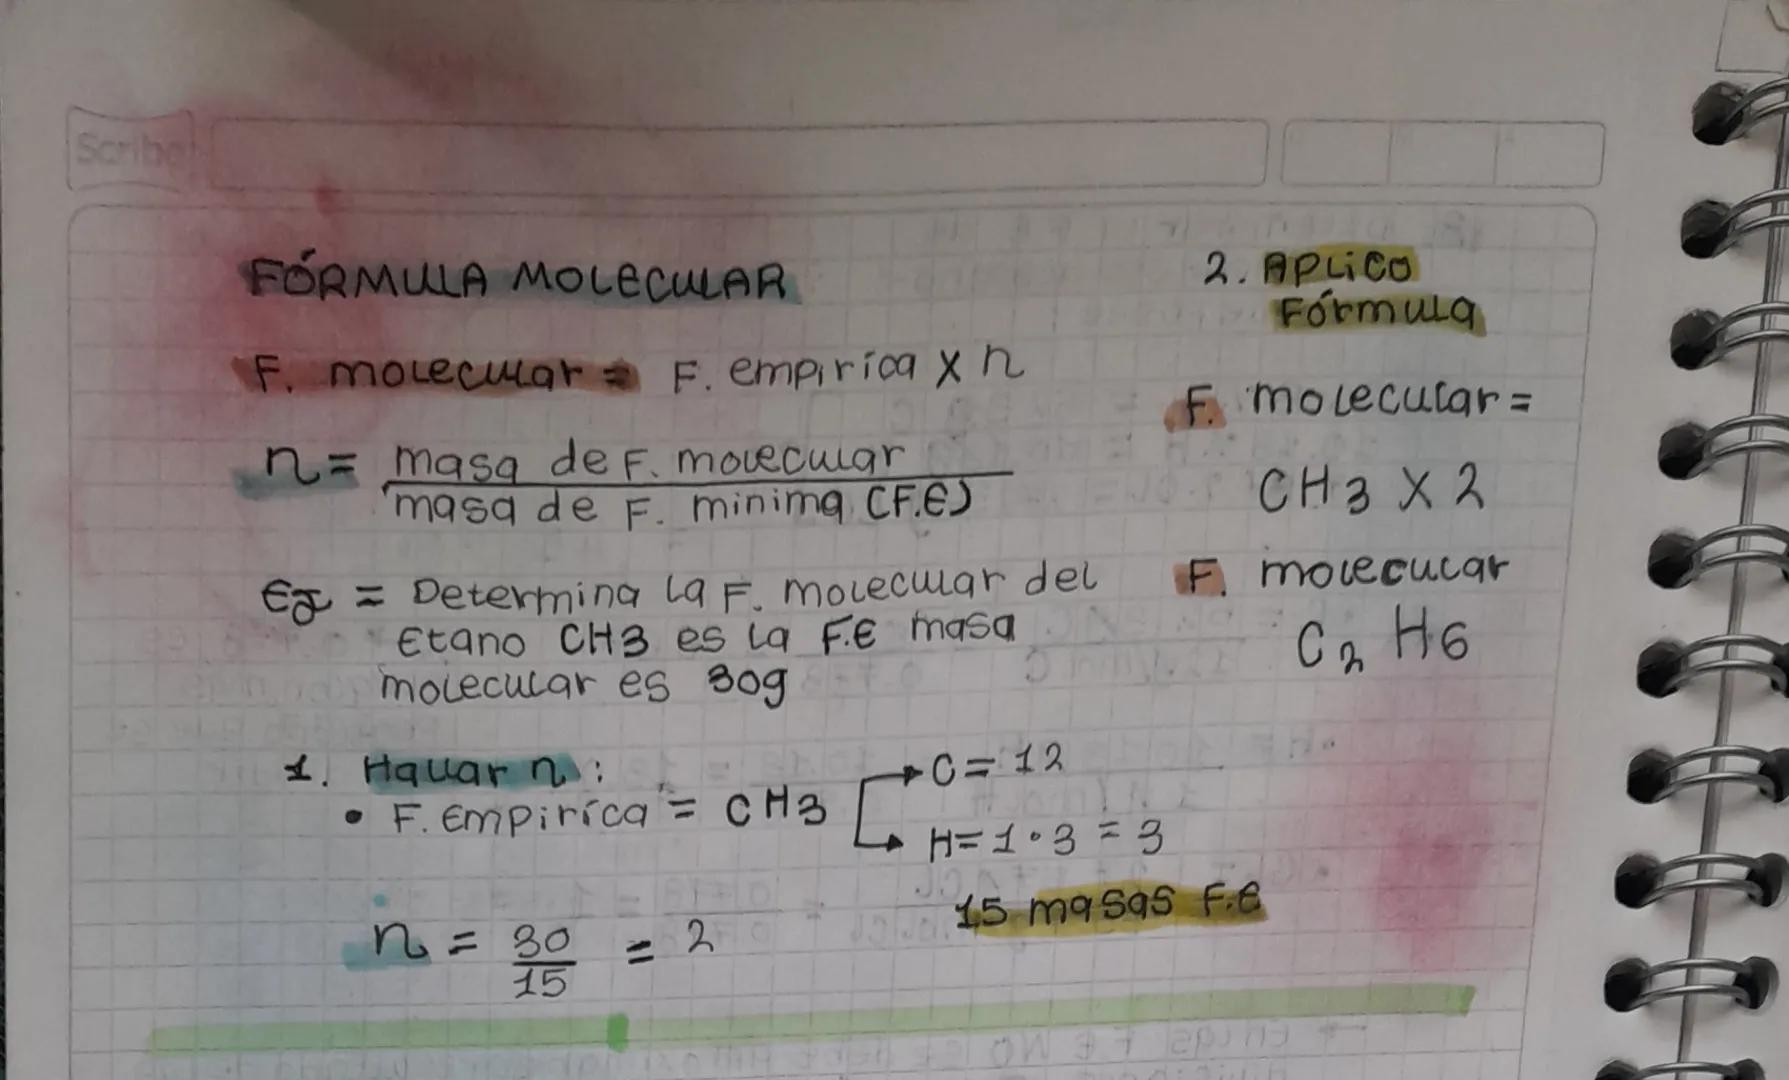 Scribe
FÓRMULA MOLECULAR
F. molecular = F. empirica x n
n = masa de F. molecular
masa de F. minima (F.E)
Ej = Determina la F. molecular del
Etano CH3 es la F.E masa
molecular es 30g
1. Hallar n:
• F. Empiríca = CH3
C = 12
H = 1 • 3 = 3
15 masas F.e
n = 30 = 2
15
2. Aplico
Fórmula
F. molecular =
CH3 X 2
F. molecular
C2 H6